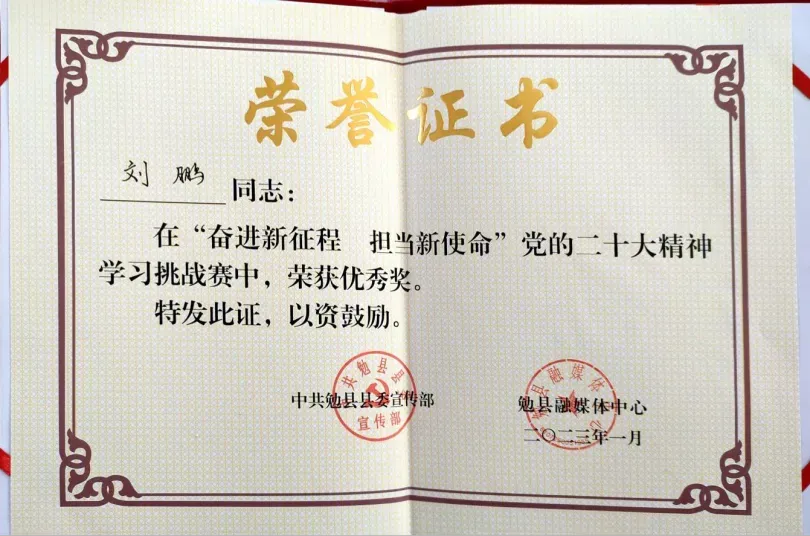 荣誉证书
刘鹏 同志：
在“奋进新征程 担当新使命”党的二十大精神
学习挑战赛中，荣获优秀奖。
特发此证，以资鼓励。
中共勉县县委宣传部
勉县融媒体中心
二〇二三年一月
共勉县县
宣传部
勉县融媒体中心